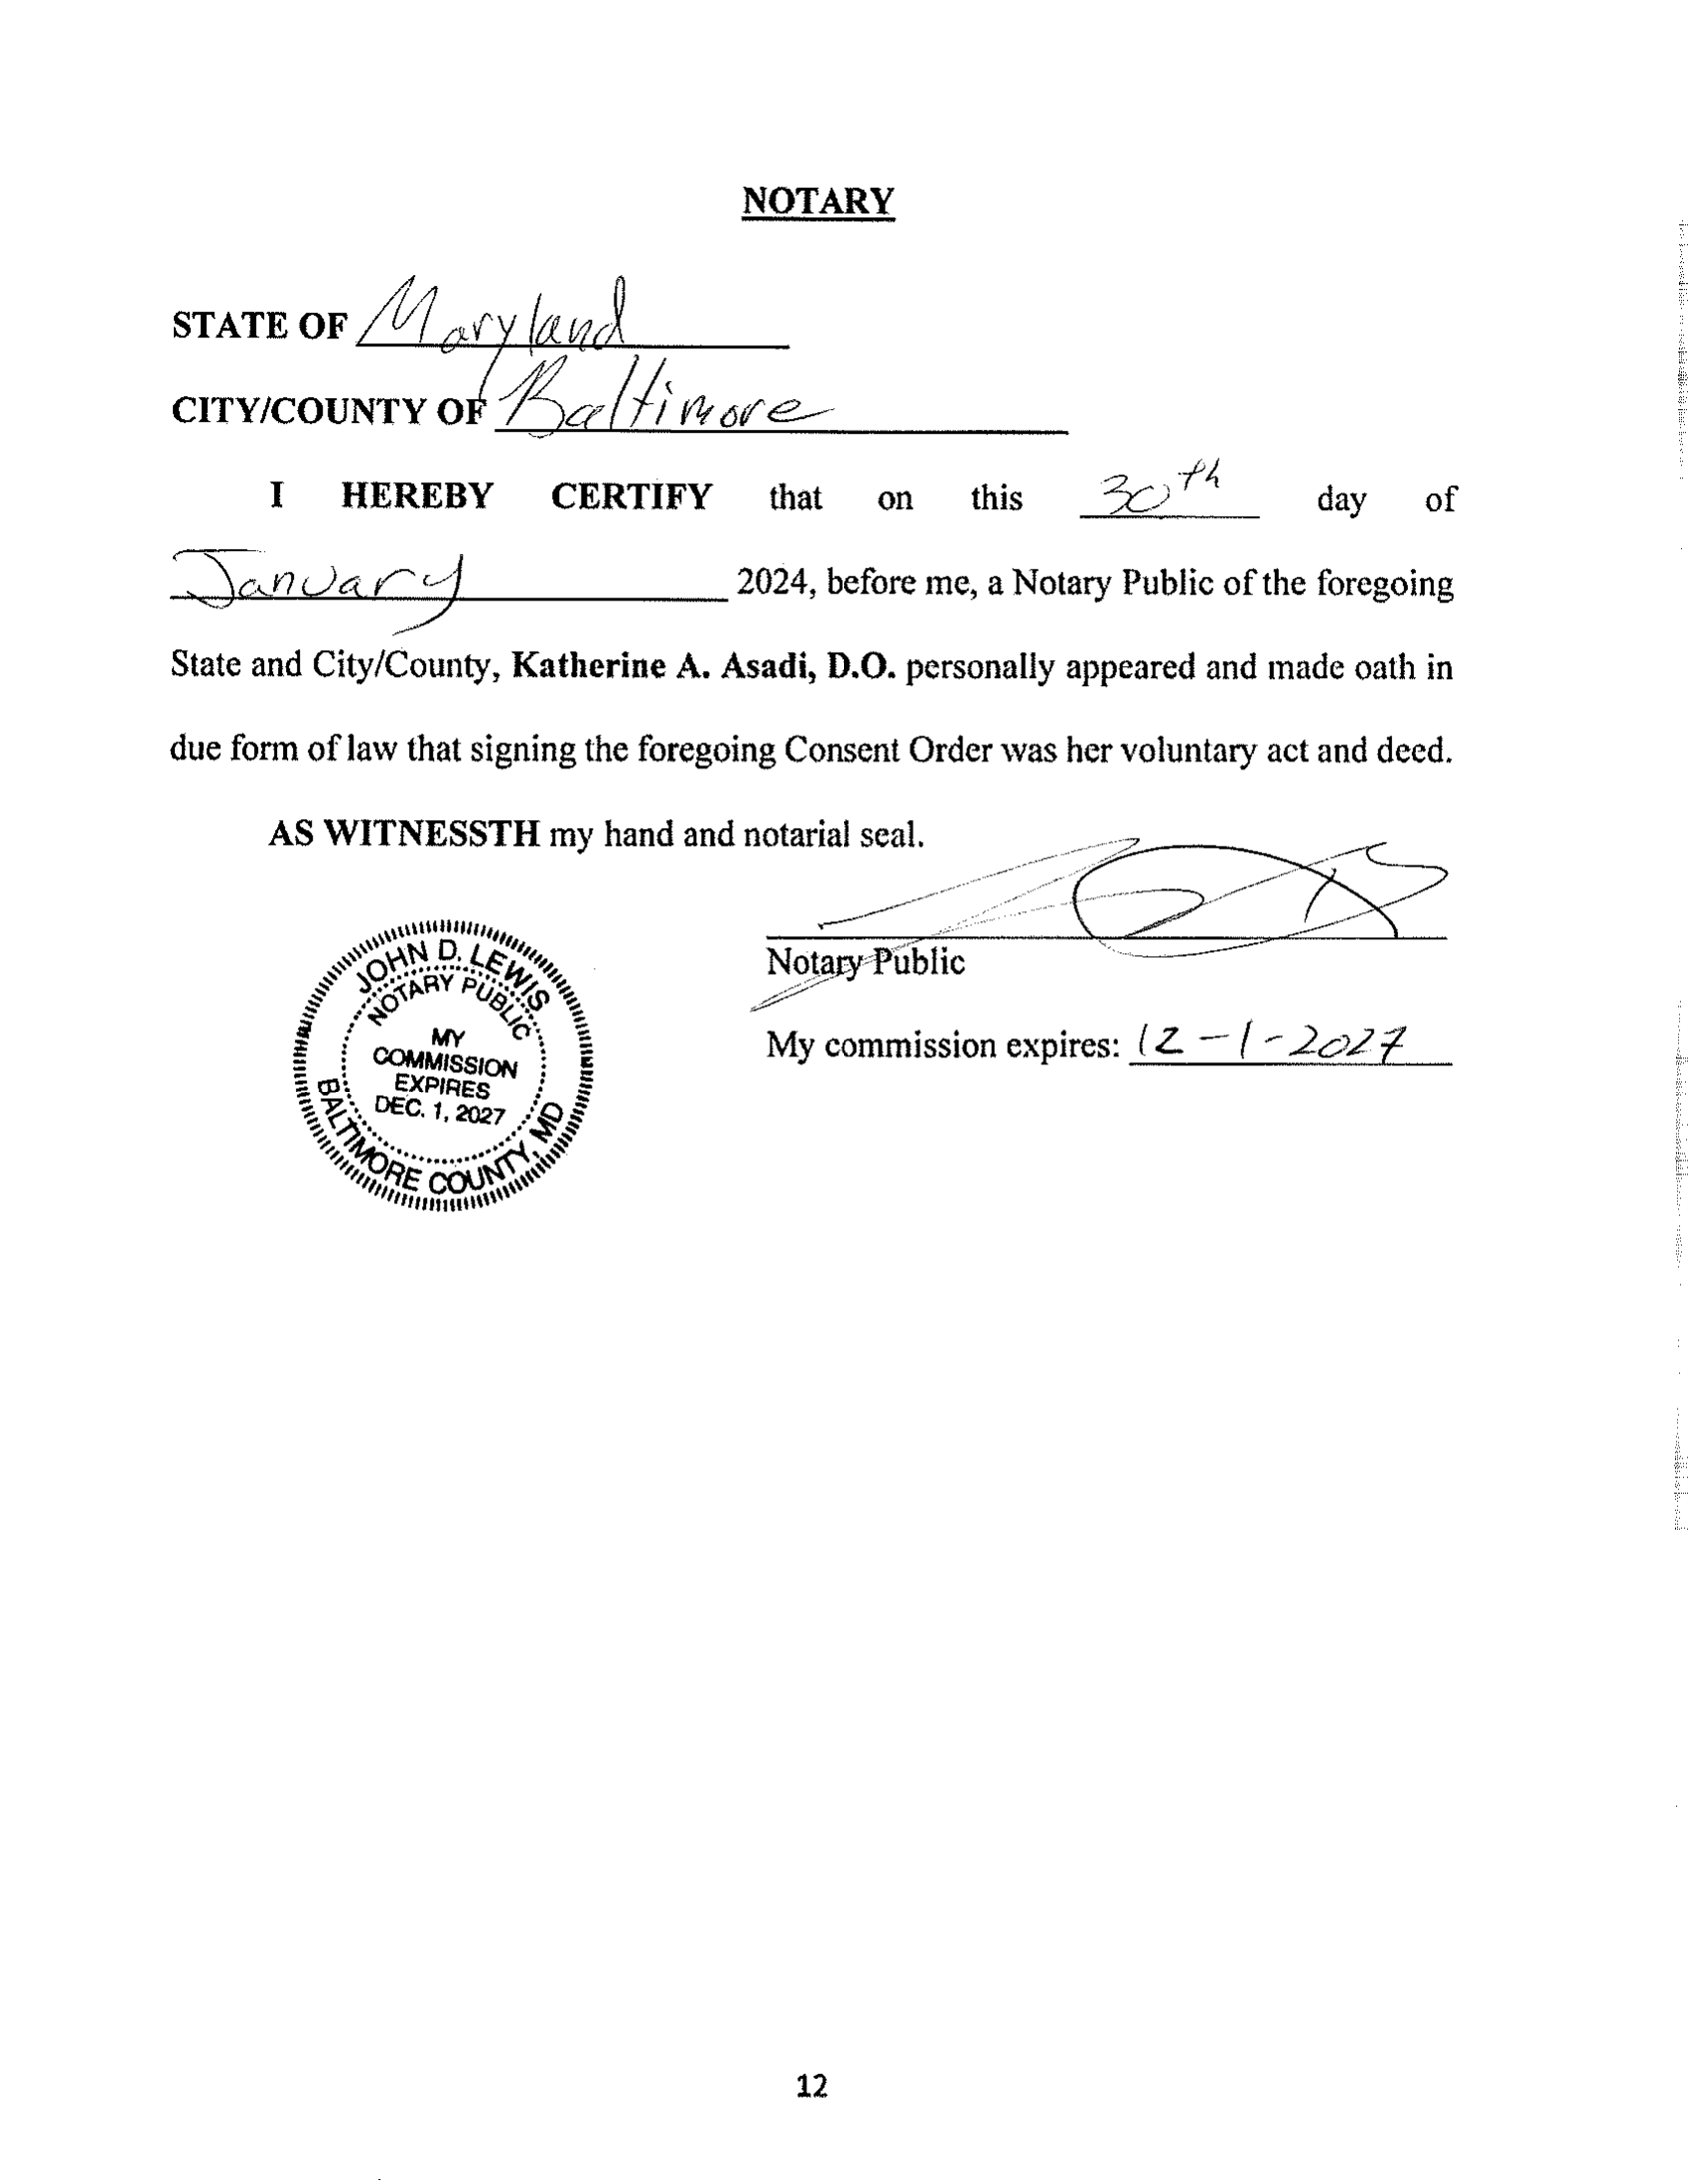 NOTARY
STATE OF Maryland
CITY/COUNTY OF Baltimore
I HEREBY CERTIFY that on this 30th day of
January 2024, before me, a Notary Public of the foregoing
State and City/County, Katherine A. Asadi, D.O. personally appeared and made oath in
due form of law that signing the foregoing Consent Order was her voluntary act and deed.
AS WITNESSTH my hand and notarial seal.
Notary Public
My commission expires: 12-1-2027
JOHN D. LEWIS
NOTARY PUBLIC
MY
COMMISSION
EXPIRES
DEC. 1, 2027
BALTIMORE COUNTY, MD
12